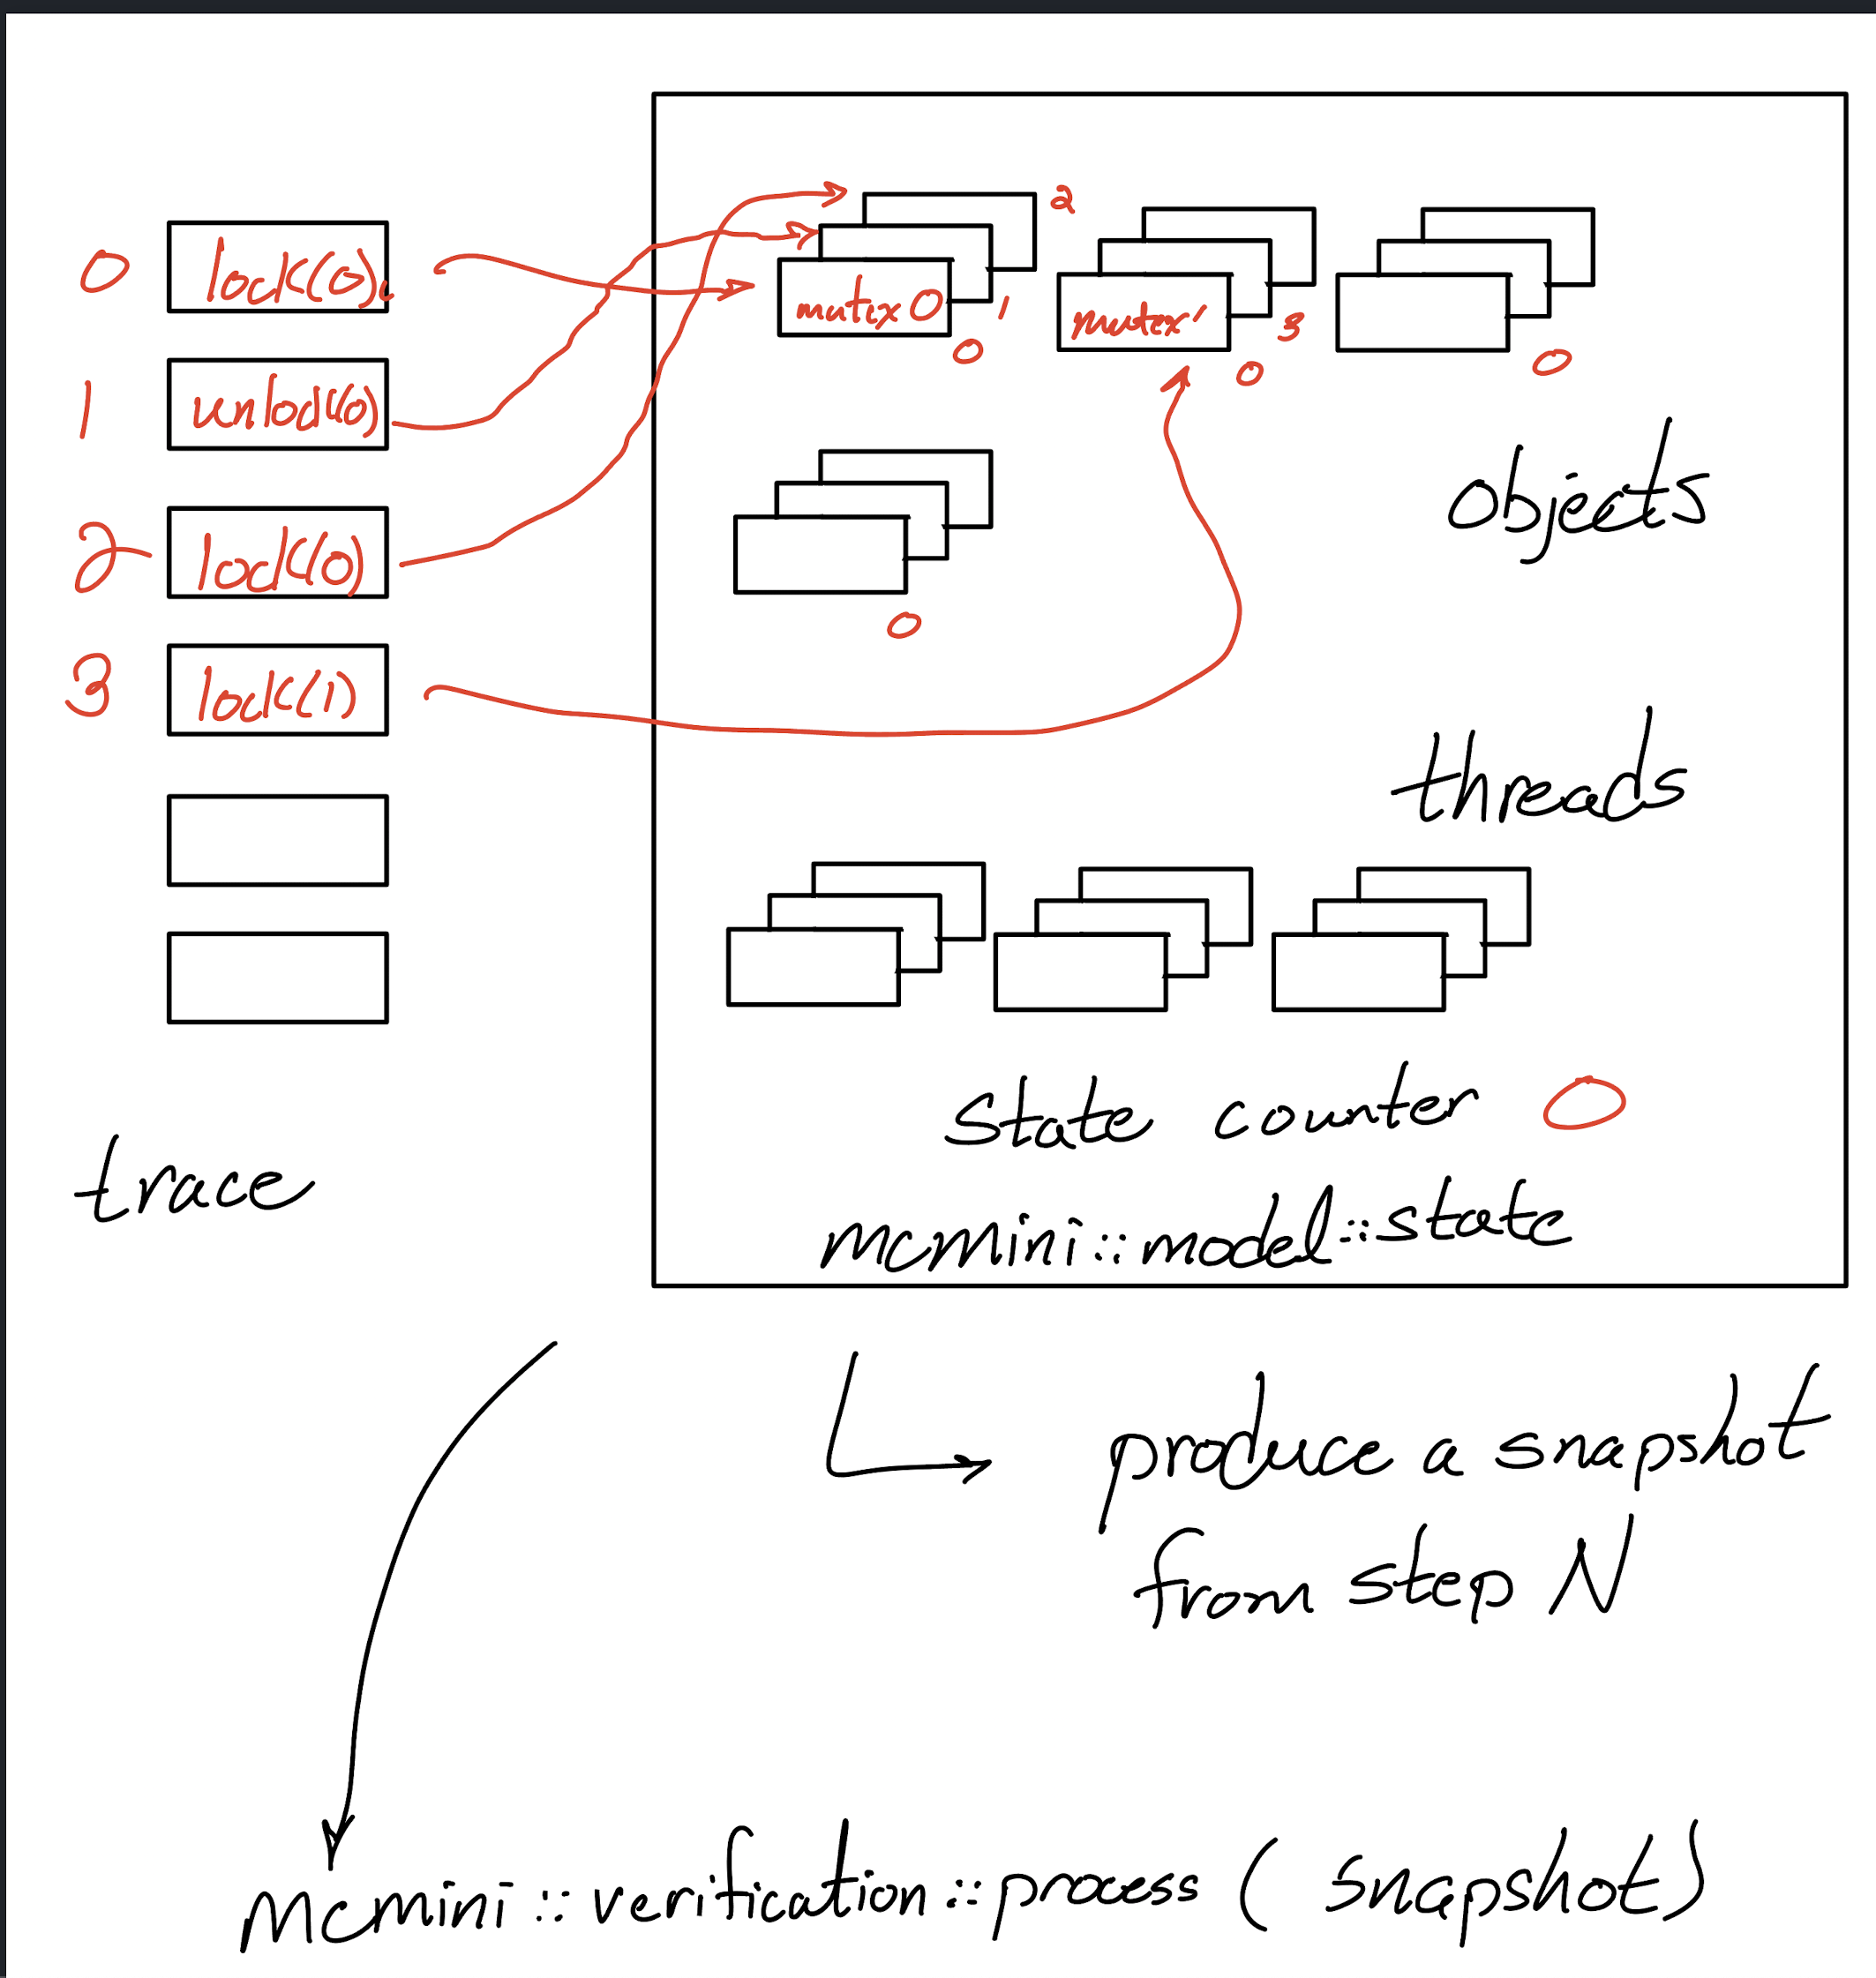 0 lock(0)
1 unlock(0)
2 lock(0)
3 lock(1)
2
mutex 0
1
0
mutex 1
3
0
0
objects
0
threads
state counter 0
mcmini::model::state
trace
produce a snapshot
from step N
Mcmini::verification::process(snapshot)